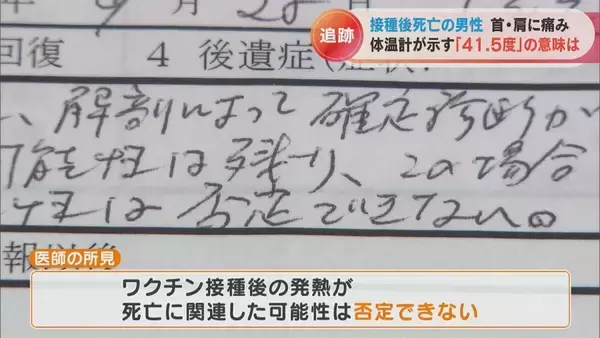 追跡
接種後死亡の男性 首・肩に痛み
体温計が示す「41.5度」の意味は
年 9月28
回復 4 後遺症(症状:
、解剖によって確定診断が
可能性は残り、この場合
性は否定できない。
報以後
医師の所見
ワクチン接種後の発熱が
死亡に関連した可能性は否定できない